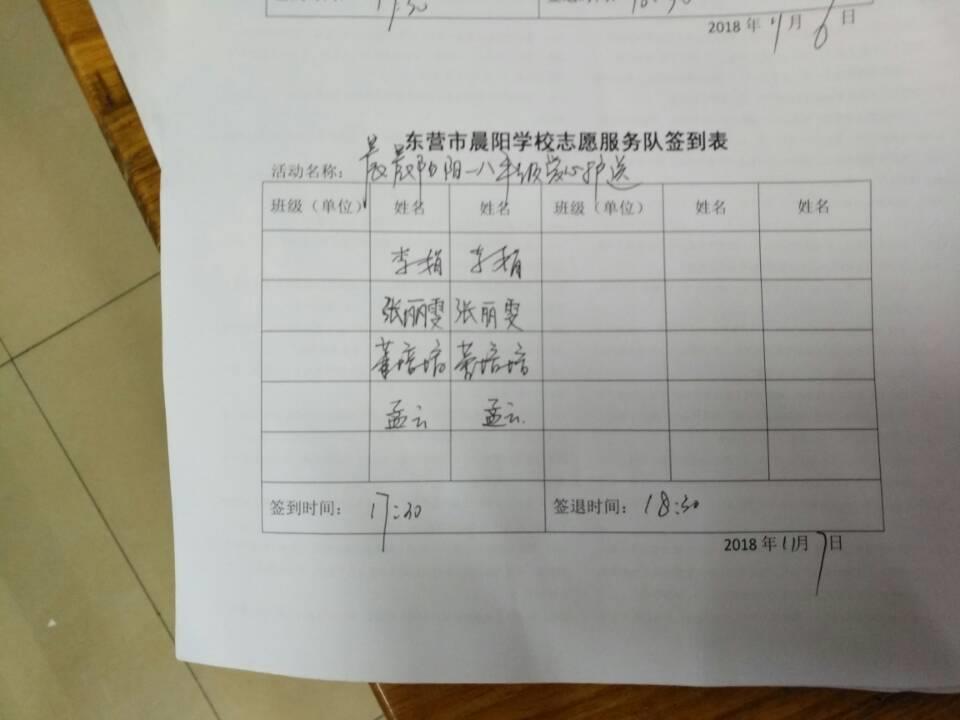 17:30
2018 年 11月 6 日
东营市晨阳学校志愿服务队签到表
活动名称: 八年级爱心护送
班级(单位) 姓名 姓名 班级(单位) 姓名 姓名
李娟 李娟
张丽雯 张丽雯
董培培 董培培
孟云 孟云
签到时间: 17:30 签退时间: 18:30
2018 年 11月 7日